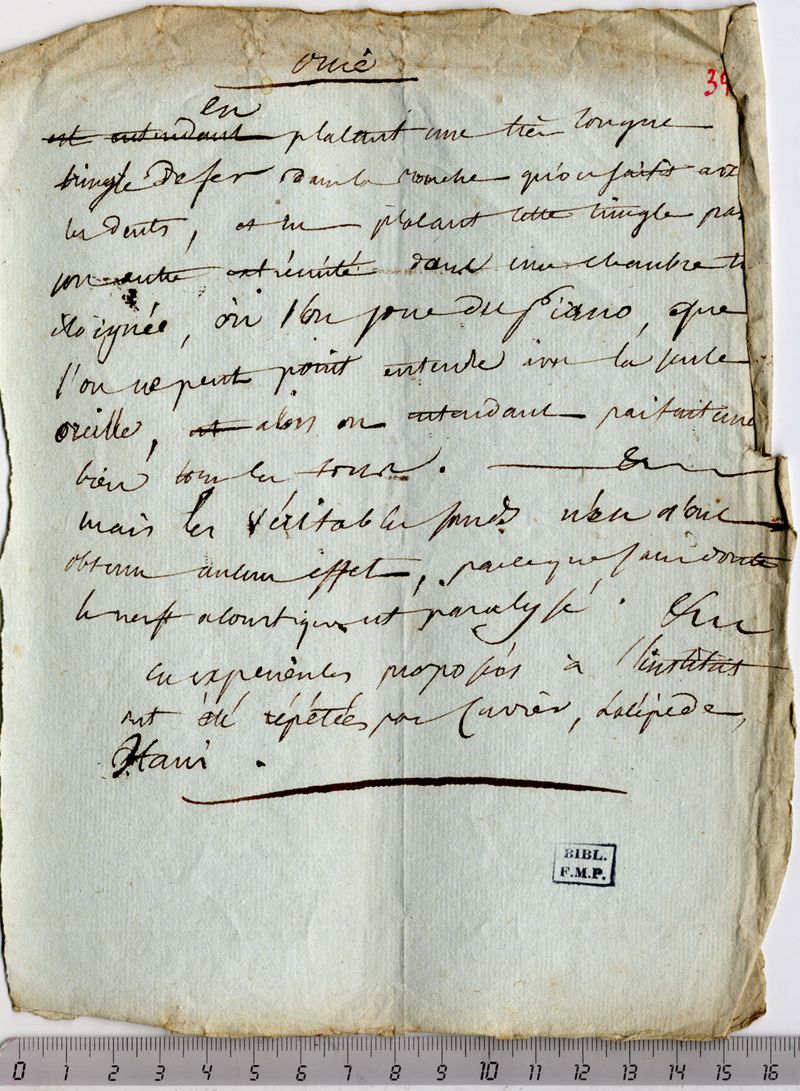 ouiè
39
en
est entendant plaçant une très longue
tringle de fer dans la bouche qu'on
les dents, et en plaçant cette tringle par
son autre extrémité dans une chambre
éloignée, où l'on joue du piano, que
l'on ne peut point entendre avec la seule
oreille, et alors on entendant parfaitement
bien tous les sons.
mais les véritables sourds n'en n'ont
obtenu aucun effet, parceque sans doute
le nerf acoustique est paralysé.
ces expériences proposées à l'institut
ont été répétées par Cuvier, Lacépède,
Haui.
BIBL.
F.M.P.
0 1 2 3 4 5 6 7 8 9 10 11 12 13 14 15 16